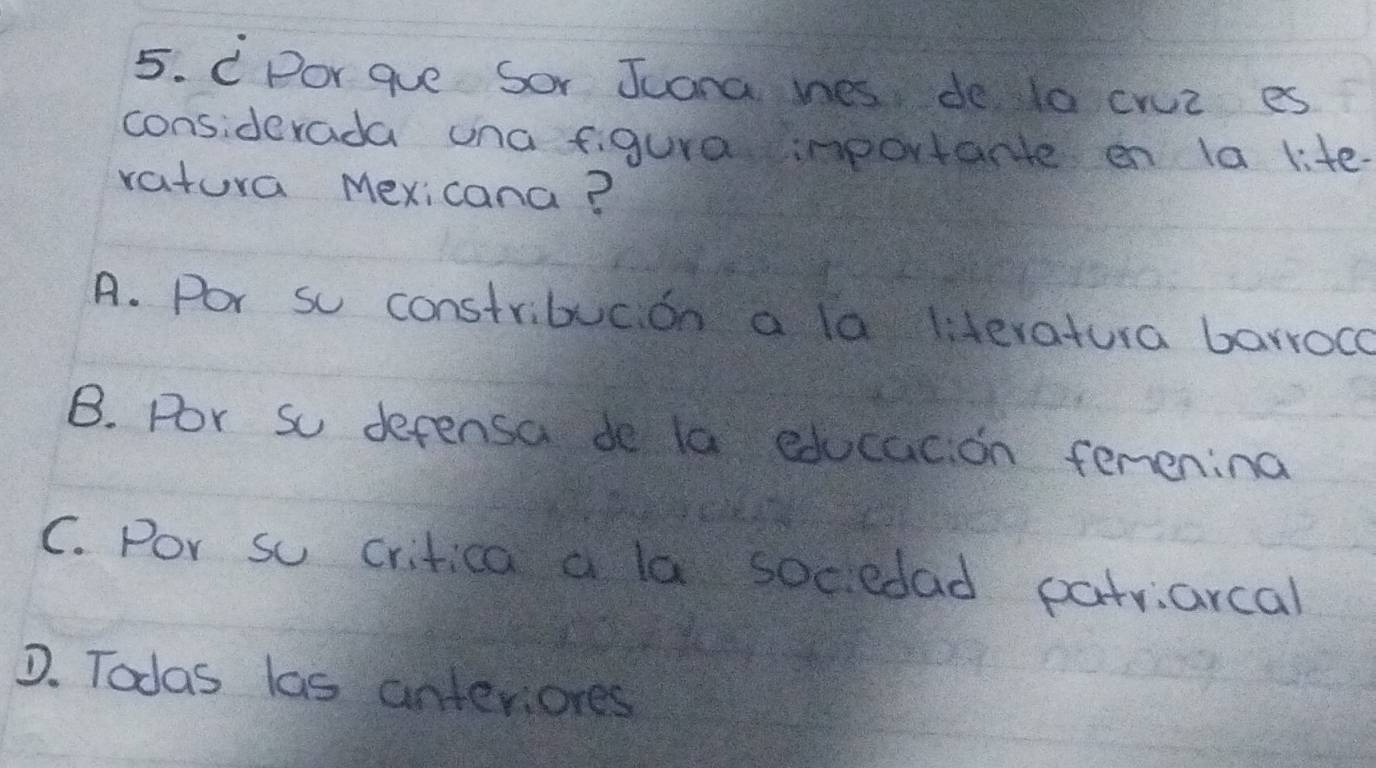 5. ¿Por que Sor Juana ines de la cruz es
considerada una figura importante en la lite-
ratura Mexicana?
A. Por su constribución a la literatura barroca
B. Por su defensa de la educación femenina
C. Por su critica a la sociedad patriarcal
D. Todas las anteriores